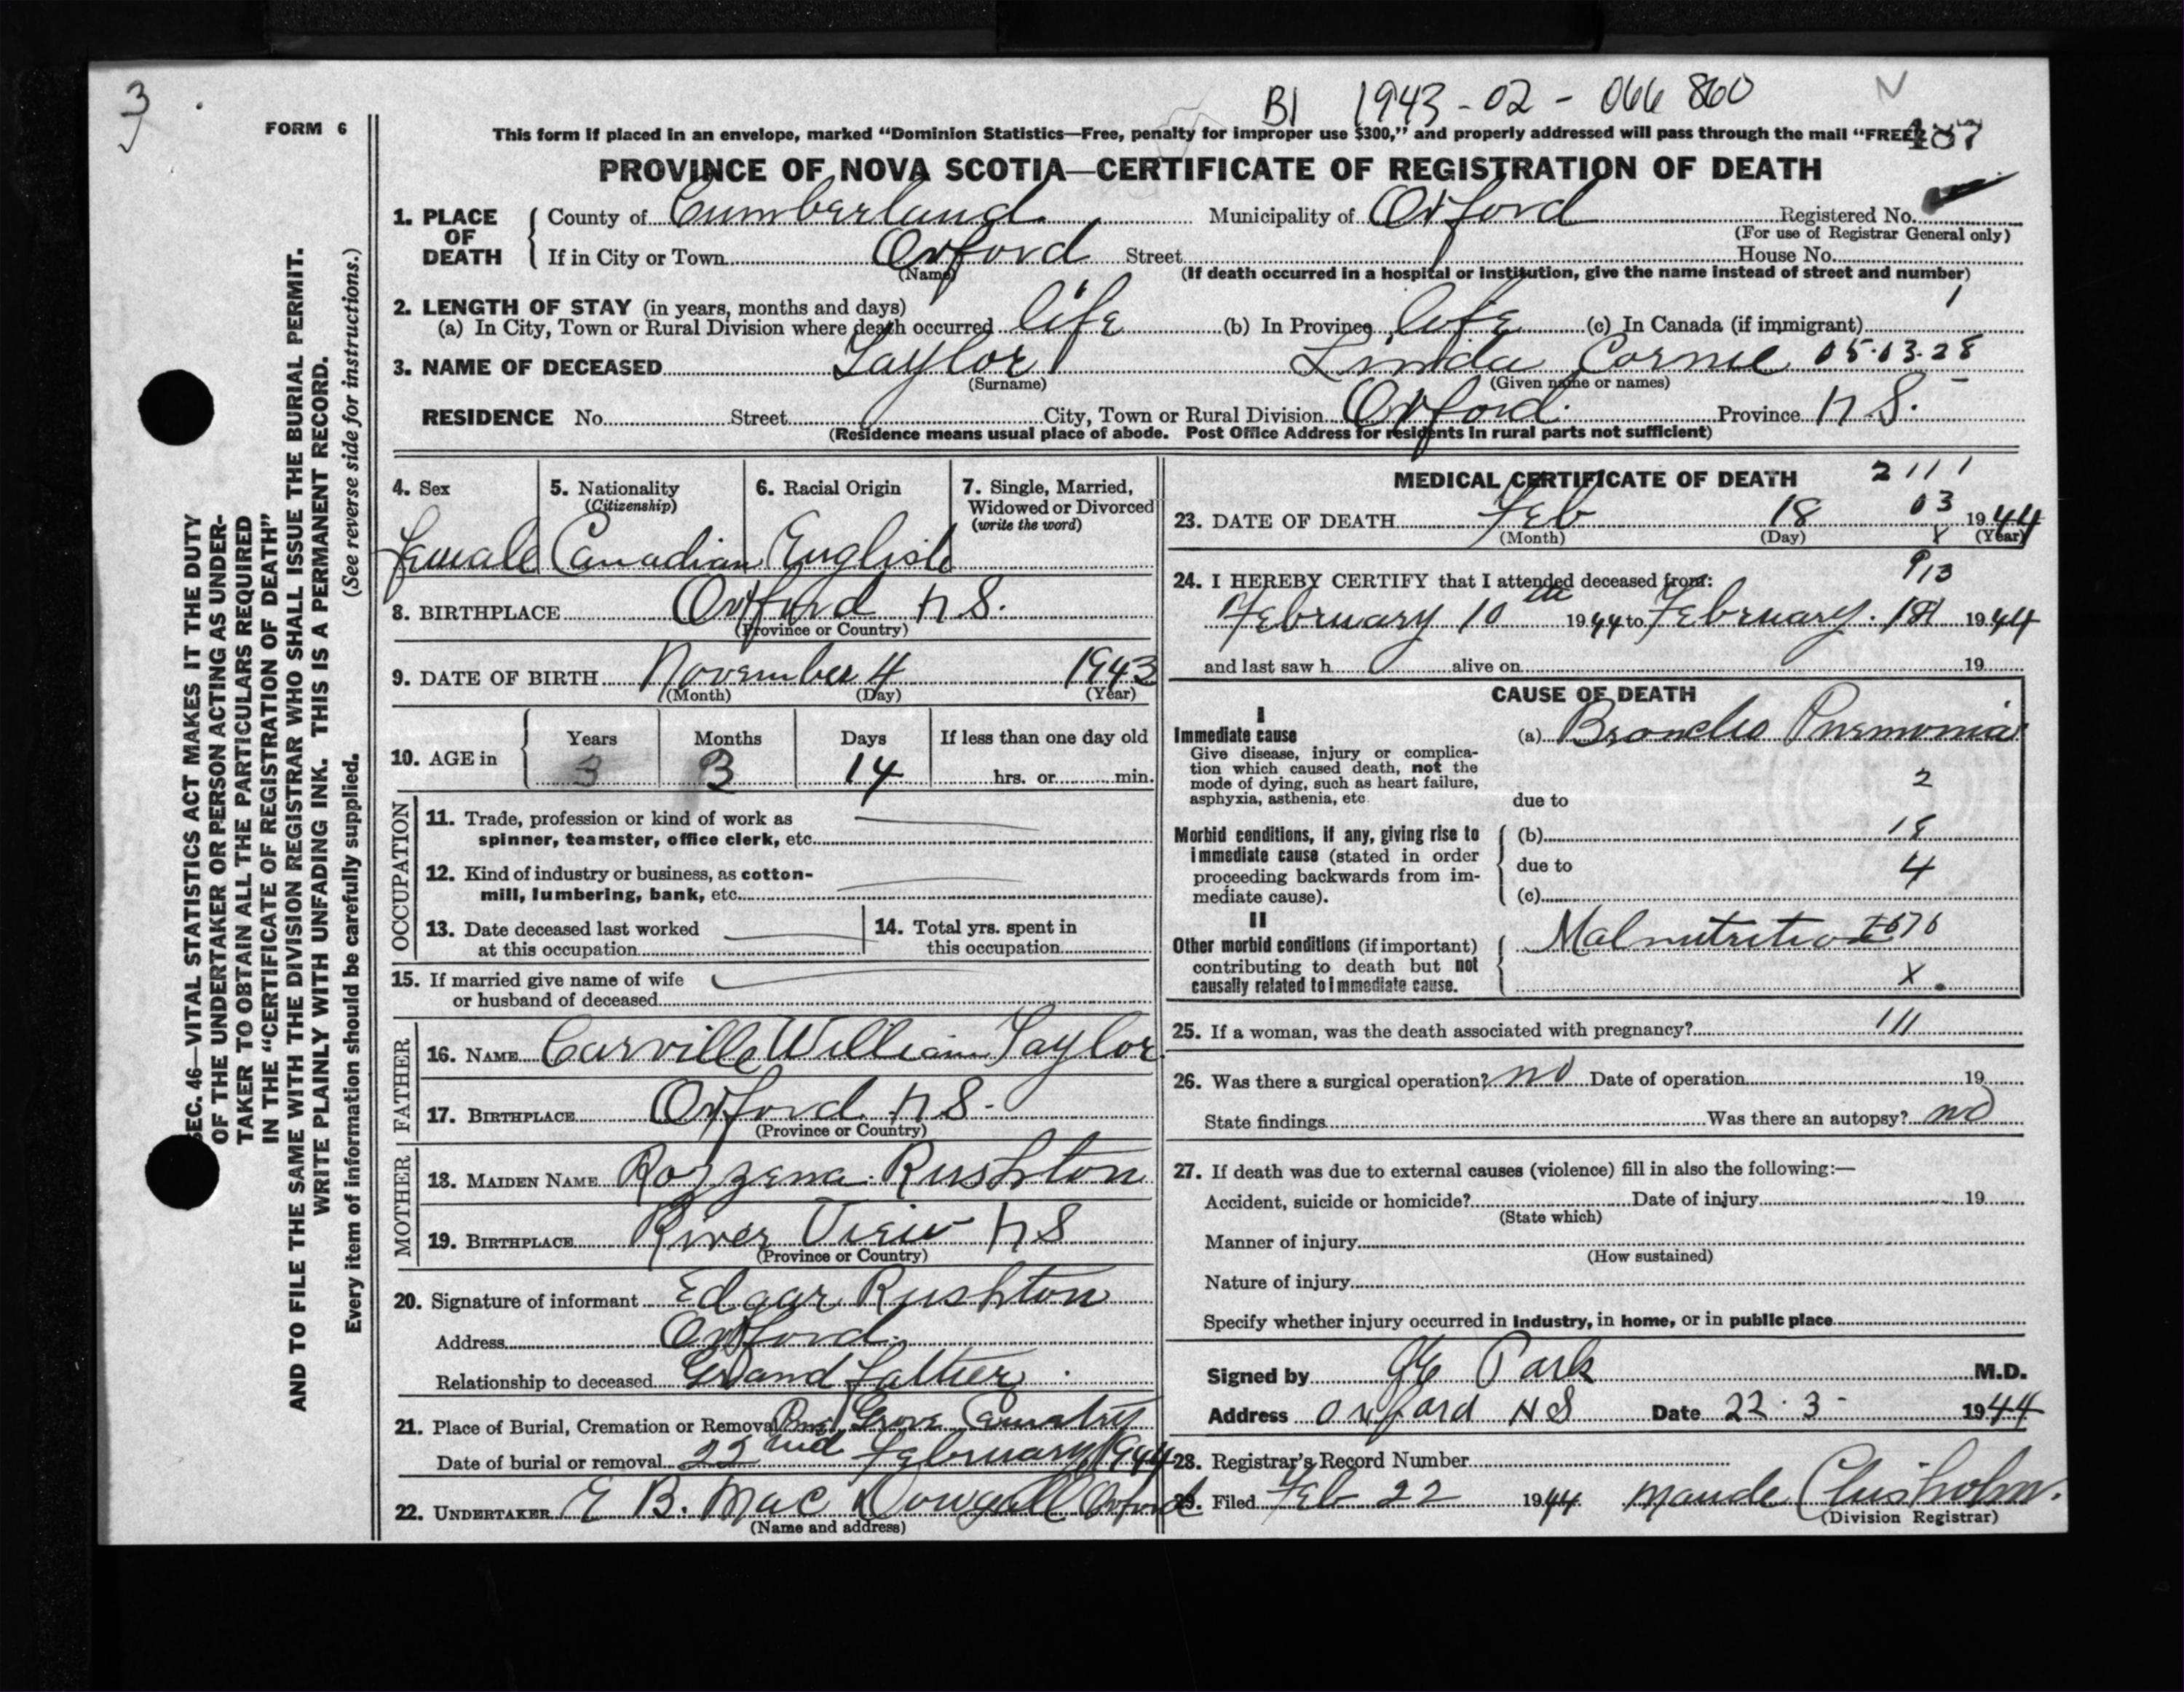 3
BI 1943-02-066 860 N
FORM 6
This form if placed in an envelope, marked “Dominion Statistics—Free, penalty for improper use $300,” and properly addressed will pass through the mail “FREE”
PROVINCE OF NOVA SCOTIA—CERTIFICATE OF REGISTRATION OF DEATH
1. PLACE OF DEATH
County of Cumberland Municipality of Oxford Registered No.
(For use of Registrar General only)
If in City or Town Oxford Street House No.
(Name) (If death occurred in a hospital or institution, give the name instead of street and number)
2. LENGTH OF STAY (in years, months and days) 1
(a) In City, Town or Rural Division where death occurred life (b) In Province life (c) In Canada (if immigrant)
3. NAME OF DECEASED Taylor Linda 05.03.28
(Surname) (Given name or names)
RESIDENCE No. Street City, Town or Rural Division Oxford. Province N S.
(Residence means usual place of abode. Post Office Address for residents in rural parts not sufficient)
4. Sex 5. Nationality (Citizenship) 6. Racial Origin 7. Single, Married, Widowed or Divorced (write the word)
Female Canadian English
8. BIRTHPLACE Oxford N S.
(Province or Country)
9. DATE OF BIRTH November 4 1943
(Month) (Day) (Year)
10. AGE in Years Months Days If less than one day old
3 3 14 hrs. or min.
OCCUPATION
11. Trade, profession or kind of work as
spinner, teamster, office clerk, etc.
12. Kind of industry or business, as cotton-
mill, lumbering, bank, etc.
13. Date deceased last worked
at this occupation
14. Total yrs. spent in
this occupation
15. If married give name of wife
or husband of deceased
FATHER
16. NAME Carville William Taylor
17. BIRTHPLACE Oxford N S.
(Province or Country)
MOTHER
18. MAIDEN NAME Rozzena Rushton
19. BIRTHPLACE River View N S
(Province or Country)
20. Signature of informant Edgar Rushton
Address Oxford
Relationship to deceased Grand father
21. Place of Burial, Cremation or Removal Grove
Date of burial or removal 22nd February 1944
22. UNDERTAKER E B. Mac Dougall Oxford
(Name and address)
MEDICAL CERTIFICATE OF DEATH 2 111
23. DATE OF DEATH Feb 18 03 1944
(Month) (Day) X (Year)
24. I HEREBY CERTIFY that I attended deceased from: 913
February 10th 1944 to February 18 1944
and last saw h alive on 19
CAUSE OF DEATH
I
Immediate cause
Give disease, injury or complica-
tion which caused death, not the
mode of dying, such as heart failure,
asphyxia, asthenia, etc.
(a) Broncho Pnemonia
2
due to
Morbid conditions, if any, giving rise to
immediate cause (stated in order
proceeding backwards from im-
mediate cause).
(b) 18
due to 4
(c)
II
Other morbid conditions (if important)
contributing to death but not
causally related to immediate cause.
Malnutrition
X
25. If a woman, was the death associated with pregnancy? 111
26. Was there a surgical operation? no Date of operation 19
State findings Was there an autopsy? no
27. If death was due to external causes (violence) fill in also the following:—
Accident, suicide or homicide? Date of injury 19
(State which)
Manner of injury
(How sustained)
Nature of injury
Specify whether injury occurred in Industry, in home, or in public place
Signed by Park M.D.
Address Oxford N S Date 22.3- 1944
28. Registrar's Record Number
29. Filed Feb 22 1944 Maude Chisholm.
(Division Registrar)
SEC. 46—VITAL STATISTICS ACT MAKES IT THE DUTY
OF THE UNDERTAKER OR PERSON ACTING AS UNDER-
TAKER TO OBTAIN ALL THE PARTICULARS REQUIRED
IN THE “CERTIFICATE OF REGISTRATION OF DEATH”
AND TO FILE THE SAME WITH THE DIVISION REGISTRAR WHO SHALL ISSUE THE BURIAL PERMIT.
WRITE PLAINLY WITH UNFADING INK. THIS IS A PERMANENT RECORD.
Every item of information should be carefully supplied. (See reverse side for instructions.)